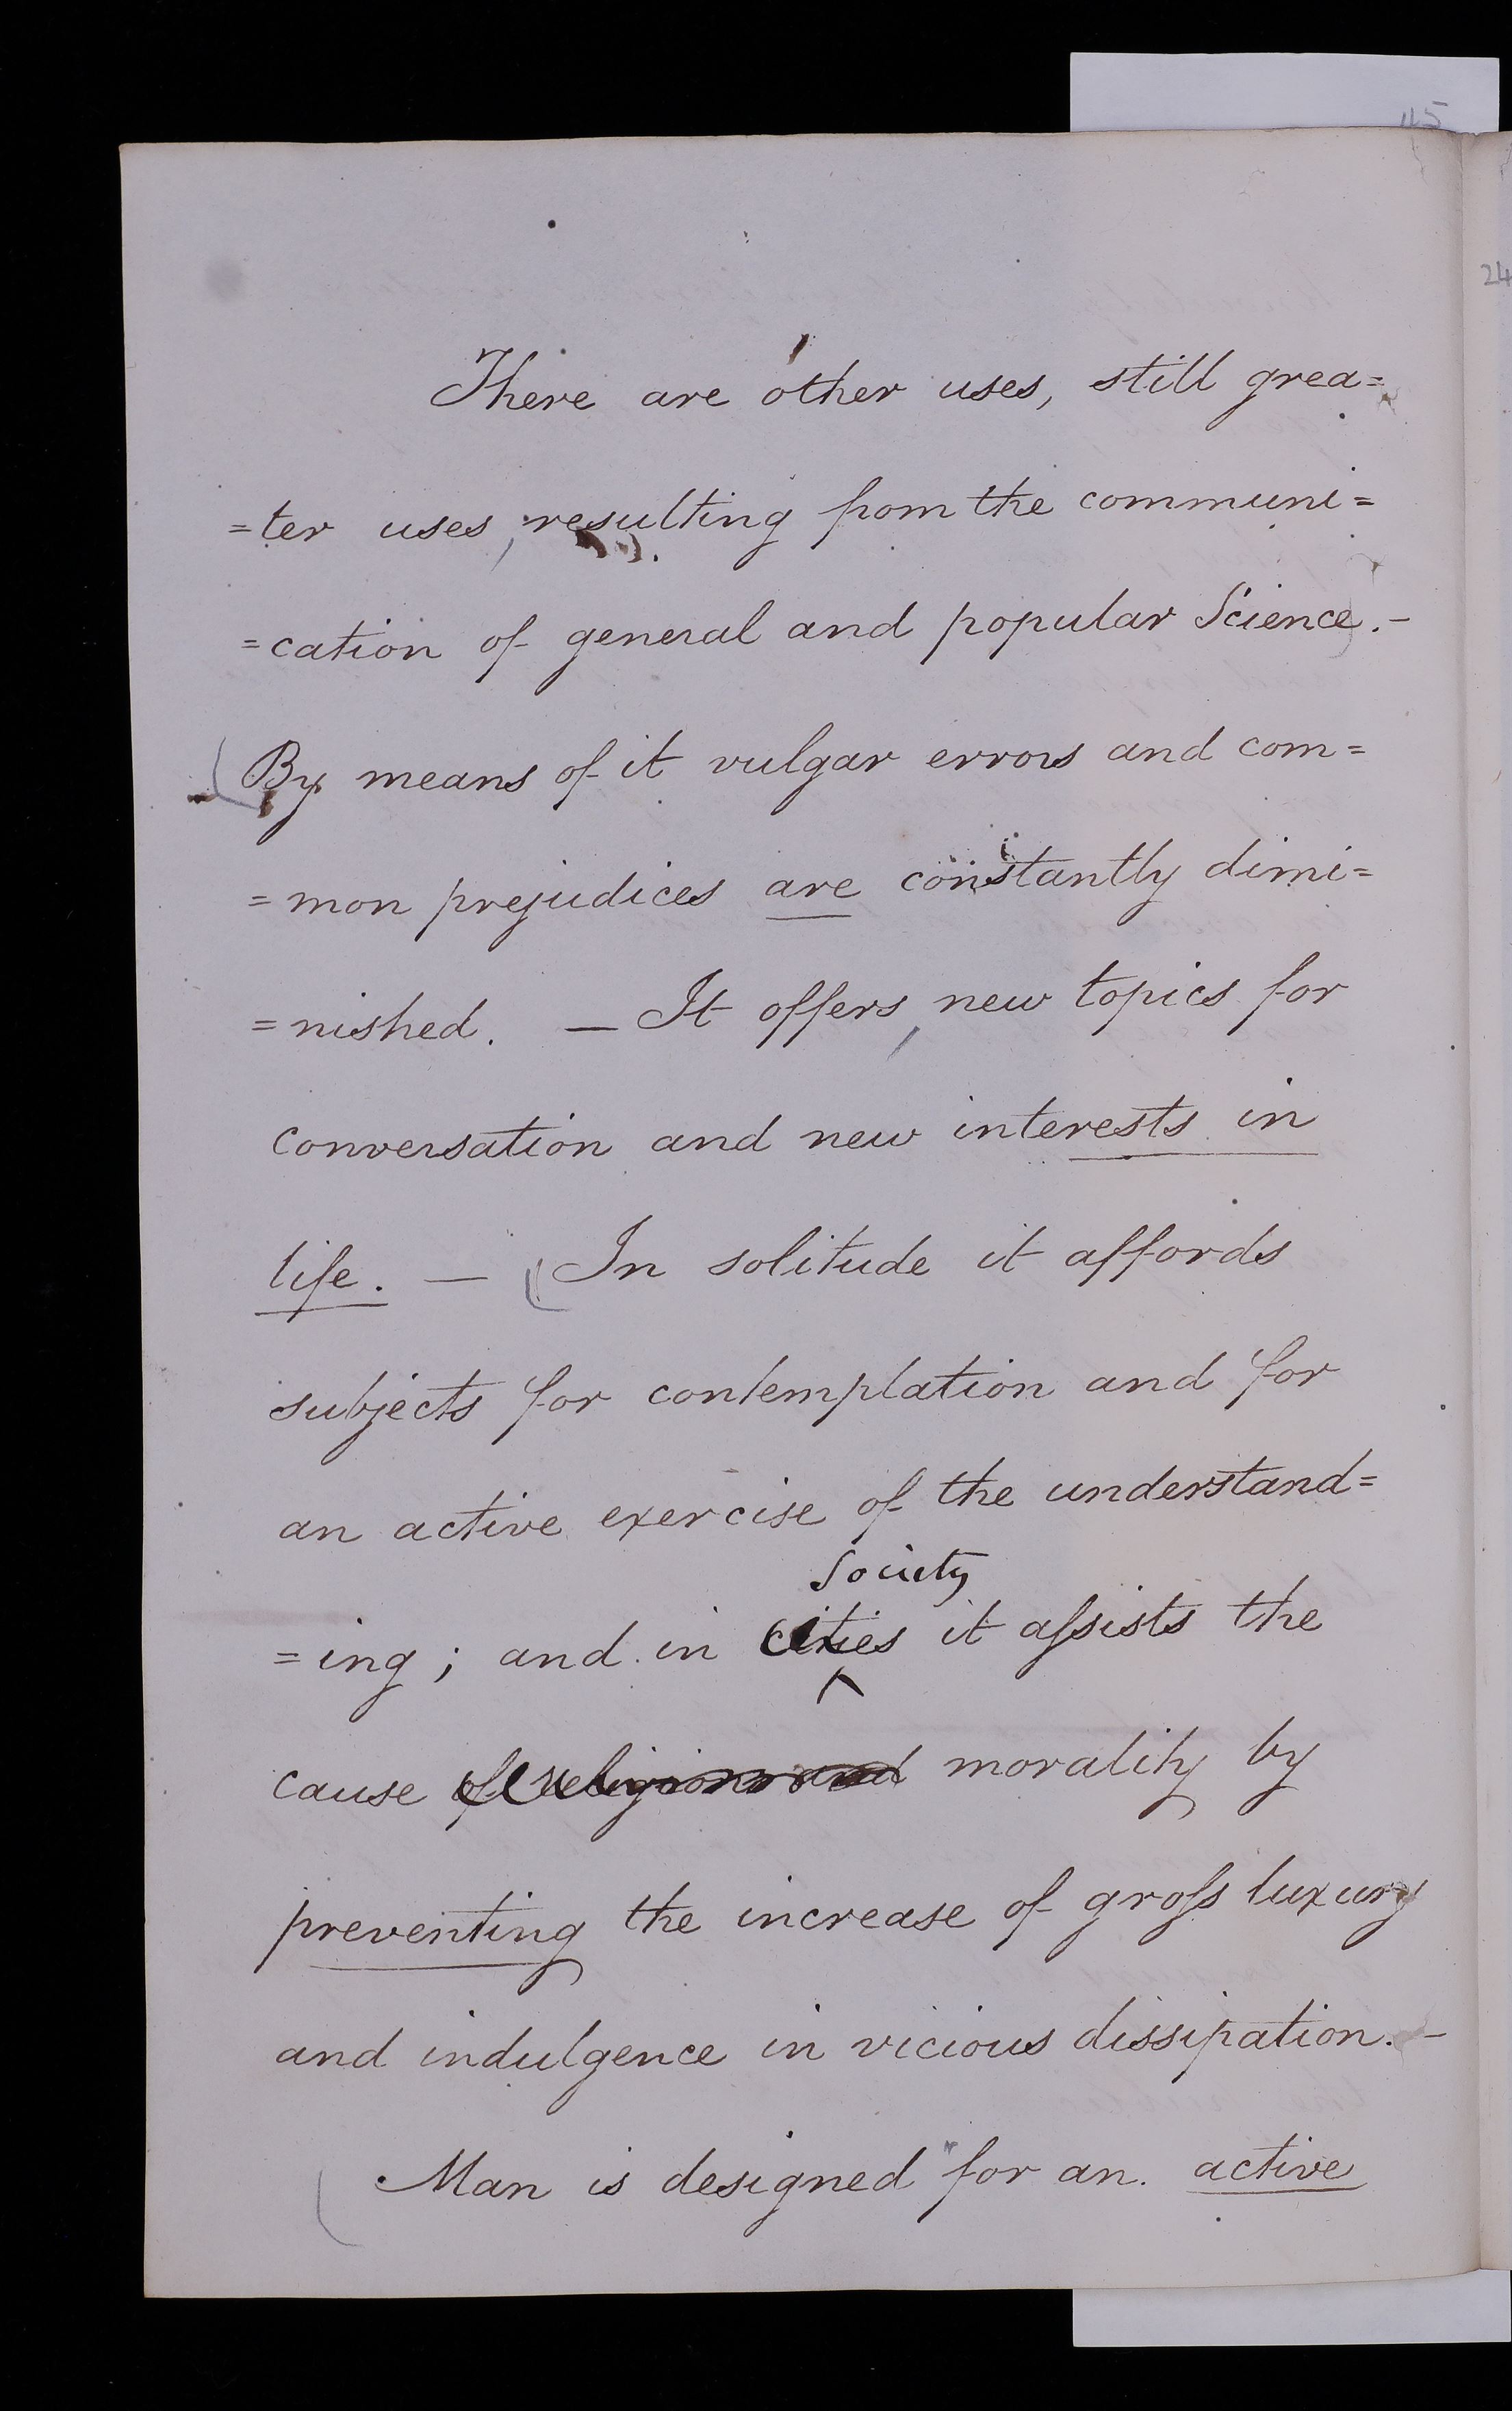 45
24
There are other uses, still grea=
=ter uses, resulting from the communi=
=cation of general and popular Science. -
(By means of it vulgar errors and com=
=mon prejudices are constantly dimi=
=nished. — It offers, new topics for
conversation and new interests in
life. — (In solitude it affords
subjects for contemplation and for
an active exercise of the understand=
Society
=ing; and in cities it assists the
cause of religion and morality by
preventing the increase of gross luxury
and indulgence in vicious dissipation. -
(Man is designed for an active